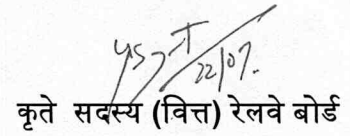 22/07.
कृते सदस्य (वित्त) रेलवे बोर्ड